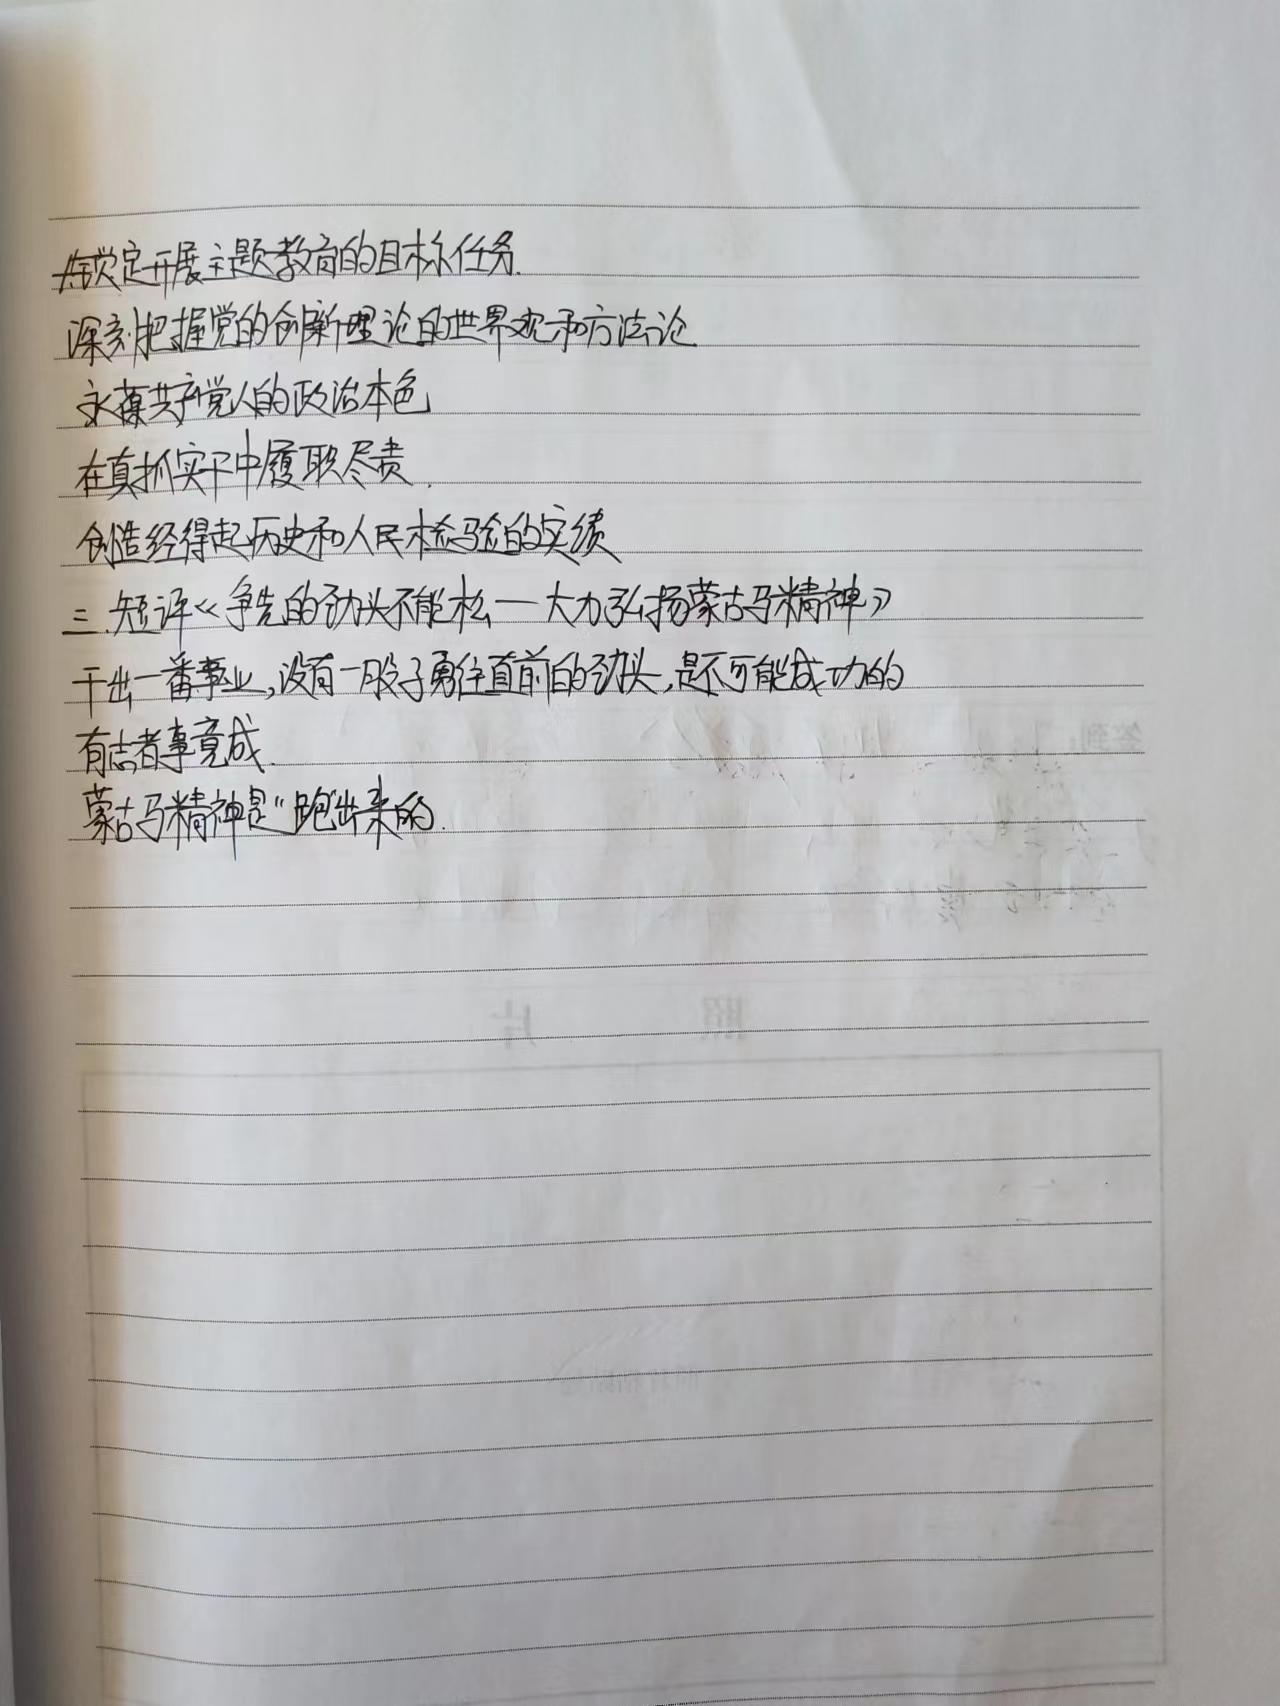 锁定开展主题教育的目标任务.
深刻把握党的创新理论的世界观和方法论
永葆共产党人的政治本色
在真抓实干中履职尽责.
创造经得起历史和人民检验的实绩
三.短评《争先的劲头不能松——大力弘扬蒙古马精神》
干出一番事业,没有一股子勇往直前的劲头,是不可能成功的
有志者事竟成.
蒙古马精神是“跑”出来的.
签到:
照 片